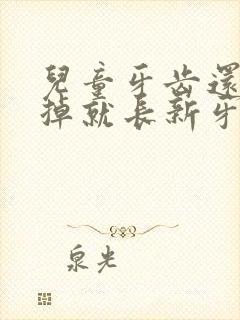 兒童牙齒還
掉就長新牙
泉光